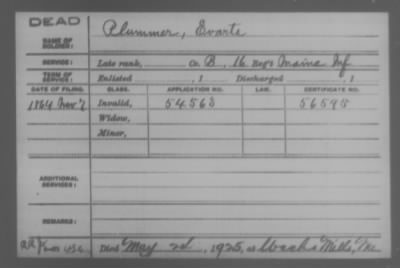 DEAD
NAME OF SOLDIER: Plummer, Evarts
SERVICE: Late rank, Co. B, 16 Reg't Maine Inf
TERM OF SERVICE: Enlisted , 1 Discharged , 1
DATE OF FILING. CLASS. APPLICATION NO. LAW. CERTIFICATE NO.
1864 Nov 7 Invalid, 54563 56595
Widow,
Minor,
ADDITIONAL SERVICES:
REMARKS:
Died May 2d, 1925, at Mills, Me